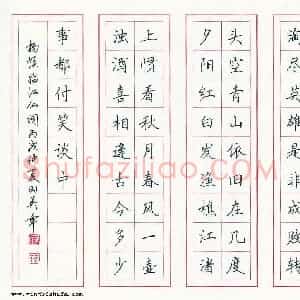 淘尽英雄是非成败转
头空青山依旧在几度
夕阳红白发渔樵江渚
上惯看秋月春风一壶
浊酒喜相逢古今多少
事都付笑谈中
杨慎临江仙词丙戌仲夏刘英章
Shufaziliao.com